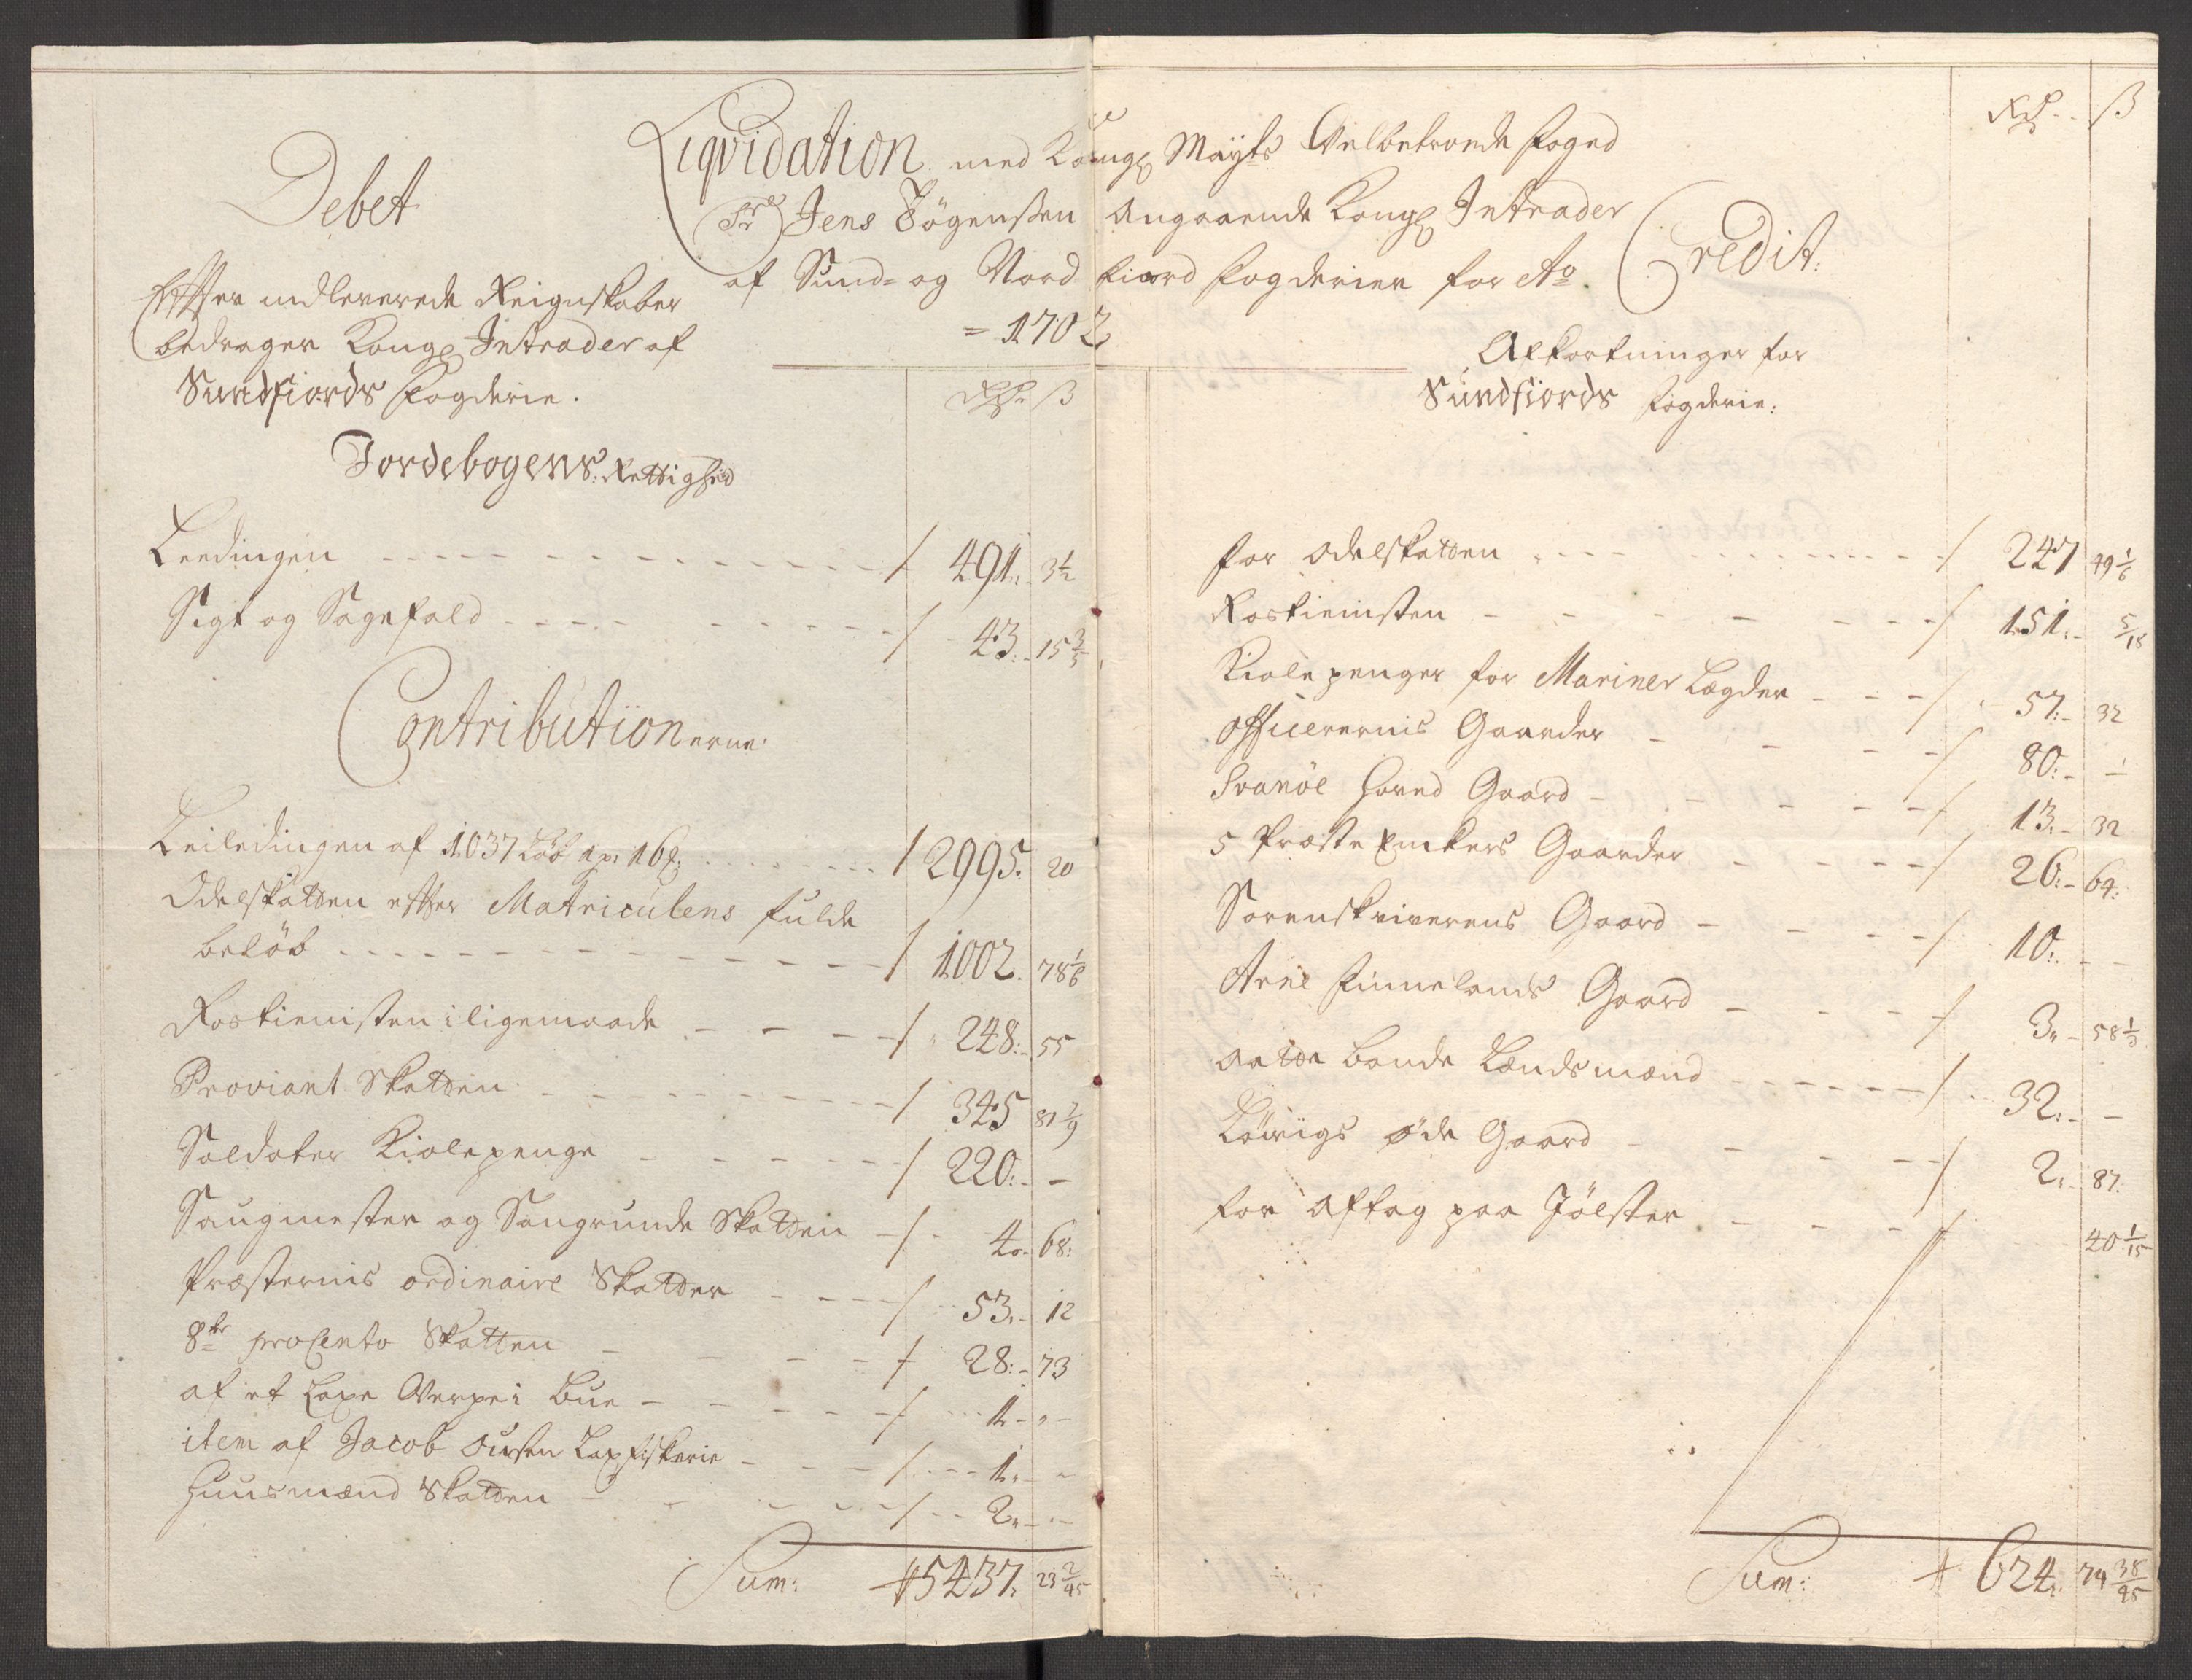 Liqvidation med Kongl Mayts Velbetroede Foged
Sr Jens Bøgenssen Angaaende Kongl Intrader
af Sund- og Nord fiord Fogderier for Ao
= 1702
Debet
Effter indleverede Reignskaber
bedrager Kongl Intrader af
Sundfiords Fogderie.
Rdr ß
Jordebogens: Rettighed
Leedingen - - - / 491. 3 1/2
Sigt og Sagefald - - - / 43. 15 3/5
Contributionerne:
Leiledingen af 1037 Løb 1 pr 16 / 2995. 20
Odelskatten effter Matriculens fulde
beløb - - - / 1002. 78 1/6
Rostienisten i ligemaade - - - / 248. 55
Proviant Skatten - - - / 345 81 7/9
Soldater Kiolepenge - - - / 220. -
Saugmester og Saugrunde Skatten - / 4. 68.
Præsternis ordinaire Skatter - - - / 53. 12
8de proCento Skatten - - - / 28. 73
af et Laxe Verpe i Bue - - - / 1. -
item af Jacob Oursen Laxfiskerie - - - / 1. -
Huusmænd Skatten - - - / 2. -
Sum: / 5437. 23 2/45
Credit:
Rdr ß
Afkortninger for
Sundfiords Fogderie:
for Odelskatten - - - / 247 49 1/6
Rostienisten - - - / 151. 5/18
Kiolepenger for Mariner Lægder - - - / 57. 32
Officerernis Gaarder - - - / 80. -
Svanøe Hoved Gaard - - - / 13. 32
5 Præste Enkers Gaarder - - - / 26. 64.
Sorenskriverens Gaard - - - / 10. -
Arne Finnelands Gaard - - - / 3. 58 1/3
aatte Bonde Lændsmænd - - - / 32. -
Løvigs øde Gaard - - - / 2. 87.
for Aftag paa Jølster - - - / 40 1/15
Sum: / 624. 74 38/45